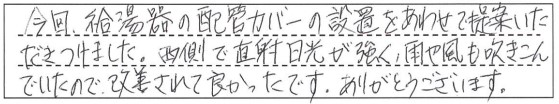 今回、給湯器の配管カバーの設置をあわせて提案いた
だきつけました。西側で直射日光が強く、雨や風も吹きこん
でいたので、改善されて良かったです。ありがとうございます。